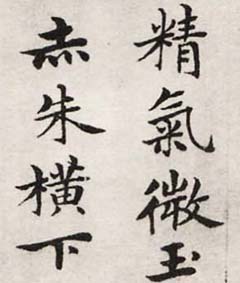 精氣微玉
赤朱橫下